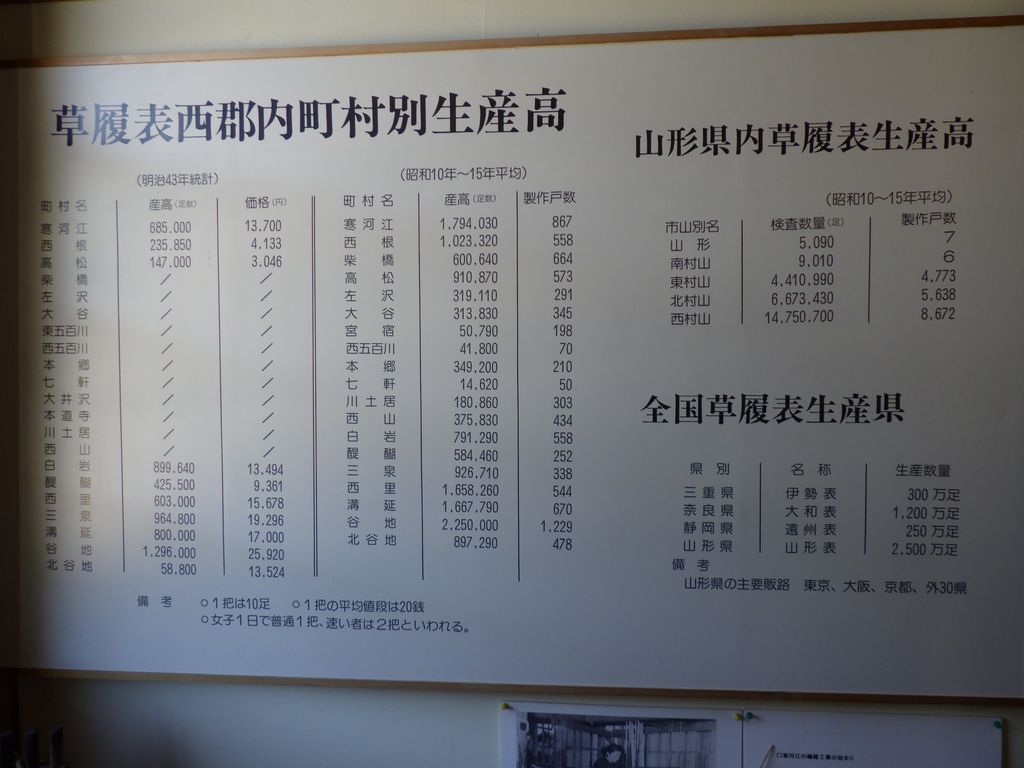 草履表西郡内町村別生産高
(明治43年統計)
町村名 産高(足数) 価格(円)
寒河江 685.000 13.700
西根 235.850 4.133
高松 147.000 3.046
柴橋 / /
左沢 / /
大谷 / /
東五百川 / /
西五百川 / /
本郷 / /
七軒 / /
大井沢 / /
本道寺 / /
川土居 / /
西山 / /
白岩 899.640 13,494
醍醐 425.500 9.361
西里 603.000 15.678
三泉 964.800 19.296
溝延 800.000 17.000
谷地 1.296.000 25.920
北谷地 58.800 13.524
(昭和10年〜15年平均)
町村名 産高(足数) 製作戸数
寒河江 1,794.030 867
西根 1,023,320 558
柴橋 600.640 664
高松 910,870 573
左沢 319,110 291
大谷 313,830 345
宮宿 50.790 198
西五百川 41,800 70
本郷 349,200 210
七軒 14.620 50
川土居 180.860 303
西山 375,830 434
白岩 791.290 558
醍醐 584,460 252
三泉 926,710 338
西里 1,658,260 544
溝延 1,667,790 670
谷地 2,250,000 1,229
北谷地 897,290 478
備考 ○1把は10足 ○1把の平均値段は20銭
○女子1日で普通1把、速い者は2把といわれる。
山形県内草履表生産高
(昭和10〜15年平均)
市山別名 検査数量(足) 製作戸数
山形 5,090 7
南村山 9,010 6
東村山 4,410,990 4.773
北村山 6,673,430 5.638
西村山 14,750,700 8,672
全国草履表生産県
県別 名称 生産数量
三重県 伊勢表 300万足
奈良県 大和表 1,200万足
静岡県 遠州表 250万足
山形県 山形表 2,500万足
備考
山形県の主要販路 東京、大阪、京都、外30県